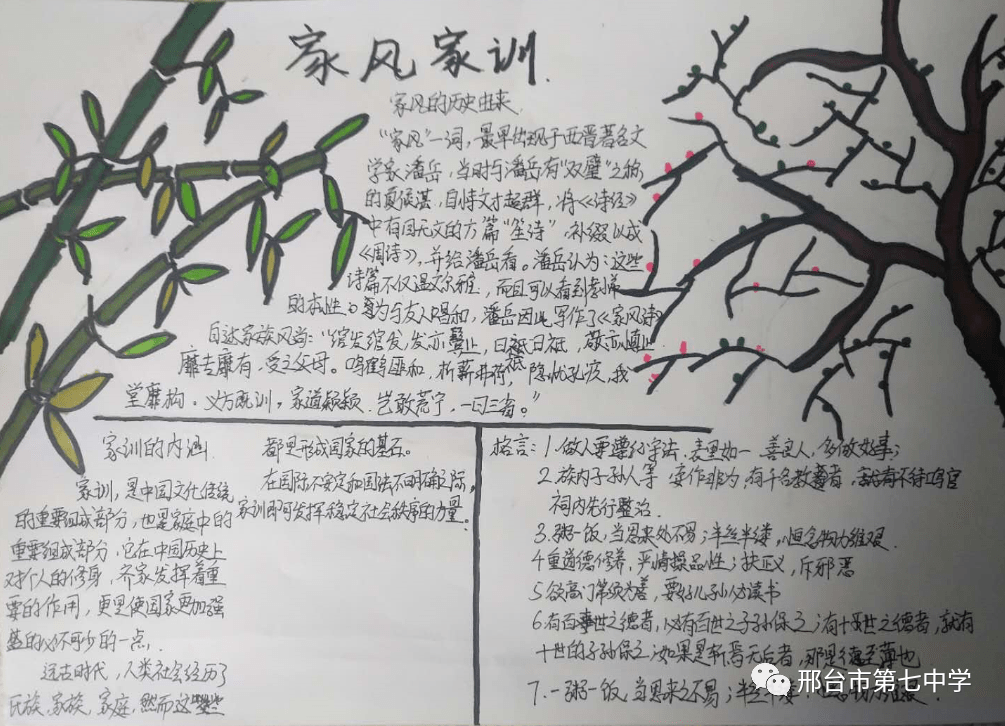 家风家训.
家风的历史由来
"家风"一词,最早出现于西晋著名文
学家潘岳,当时与潘岳有"双璧"之称
的夏侯湛,自恃文才超群,将《诗经》
中有目无文的六篇"笙诗",补缀以成
《周诗》,并给潘岳看。潘岳认为:这些
诗篇不仅温文尔雅,而且可以看到孝弟
的本性。为与友人唱和,潘岳因此写作了《家风诗》
自述家族风尚:"绾发绾发,发亦鬓止,曰祗曰祗,敬亦慎止
靡专靡有,受之父母。鸣鹤匪和,析薪弗荷,隐忧孔疚,我
堂靡构。义方既训,家道颖颖,岂敢荒宁,一日三省。"
家训的内涵
家训,是中国文化传统
的重要组成部分,也是家庭中的
重要组成部分,它在中国历史上
对个人的修身,齐家发挥着重
要的作用,更是使国家更加强
盛的必不可少的一点.
远古时代,人类社会经历了
氏族,家族,家庭,然而这些
都是形成国家的基石。
在国际不安定和国法不明确之际,
家训即可发挥稳定社会秩序的力量。
格言:1.做人要遵纪守法,表里如一,善良人,多做好事;
2.族内子孙人等 妄作非为,有干名教尊者,不待鸣官
祠内先行整治.
3.粥一饭,当思来处不易;半丝半缕,恒念物力维艰.
4重道德修养,严情操品性;扶正义,斥邪恶
5.欲高门第须为善,要好儿孙必读书
6.有百世之德者,必有百世之子孙保之;有十世之德者,就有
十世的子孙保之;如果是斩焉无后者,那是德至薄也
7.一粥一饭,当思来之不易;半丝半缕
邢台市第七中学